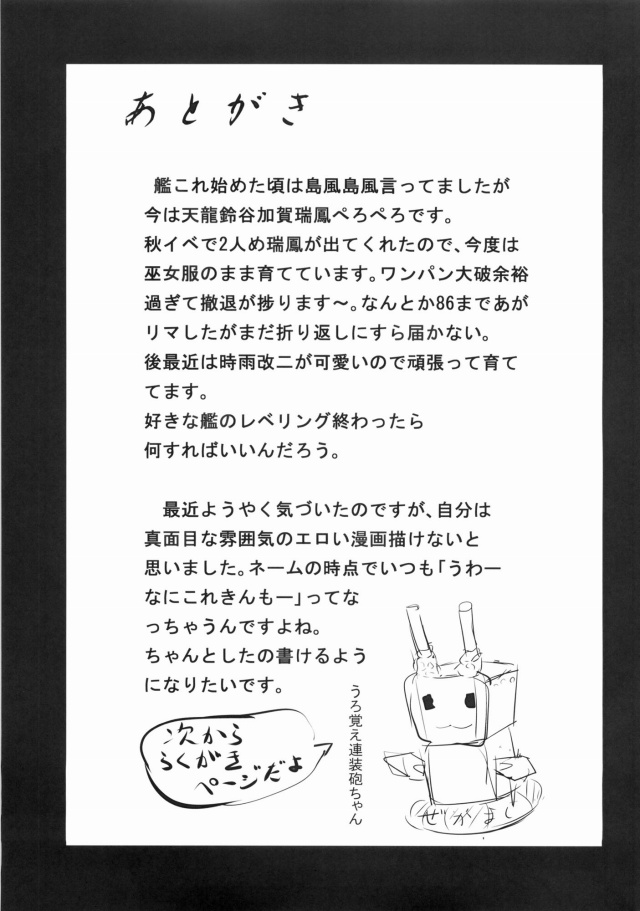 あとがき
艦これ始めた頃は島風島風言ってましたが
今は天龍鈴谷加賀瑞鳳ぺろぺろです。
秋イベで2人め瑞鳳が出てくれたので、今度は
巫女服のまま育てています。ワンパン大破余裕
過ぎて撤退が捗ります～。なんとか86まであが
リマしたがまだ折り返しにすら届かない。
後最近は時雨改二が可愛いので頑張って育て
てます。
好きな艦のレベリング終わったら
何すればいいんだろう。
最近ようやく気づいたのですが、自分は
真面目な雰囲気のエロい漫画描けないと
思いました。ネームの時点でいつも「うわー
なにこれきんもー」ってな
っちゃうんですよね。
ちゃんとしたの書けるよう
になりたいです。
うろ覚え連装砲ちゃん
次から
らくがき
ページだよ
ぜかまし